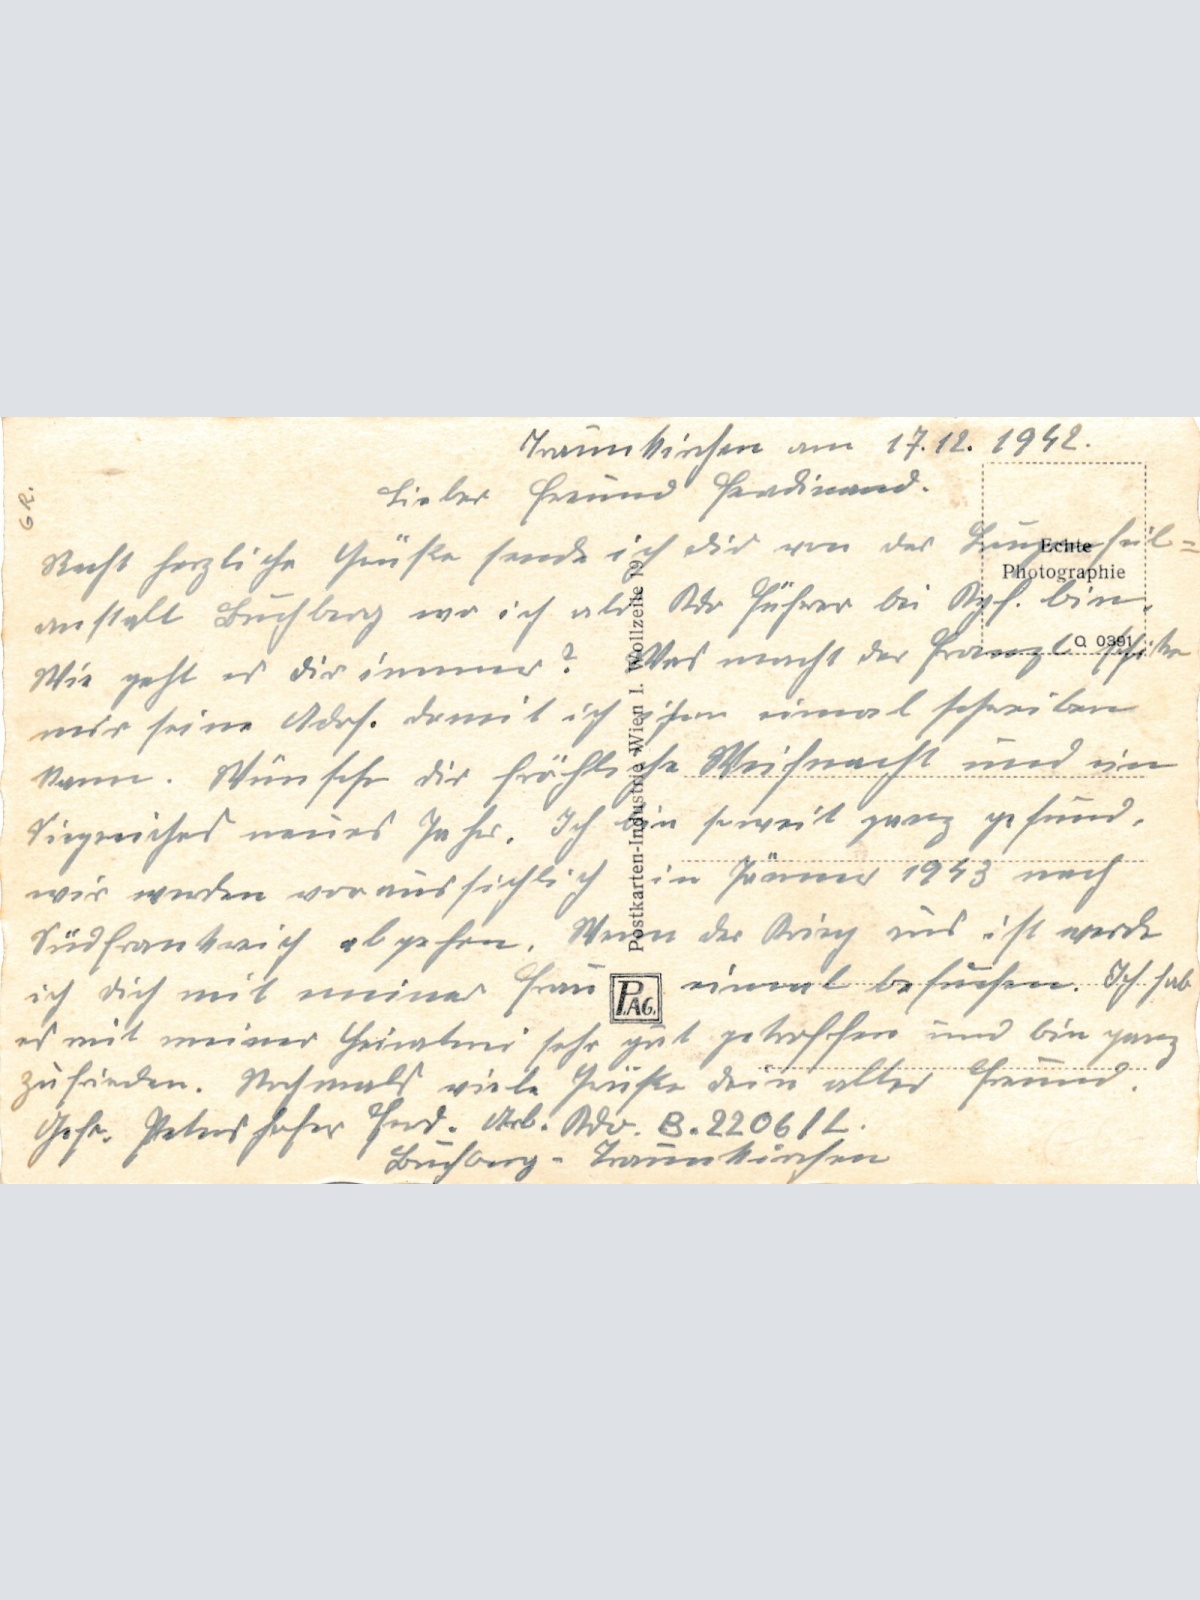 Traunkirchen am 17.12.1942.
Lieber Freund Ferdinand.
Recht herzliche Grüße sende ich dir von der Lungenheil=
anstalt Buchberg wo ich als Kdo Führer bei Kgf. bin.
Wie geht es dir immer? Was macht der Franzl schicke
mir seine Adrs. damit ich ihm einmal schreiben
kann. Wünsche dir fröhliche Weihnacht und ein
Siegreiches neues Jahr. Ich bin soweit ganz gesund,
wir werden voraussichlich in Jänner 1943 nach
Südfrankreich abgehen. Wenn der Krieg aus ist werde
ich dich mit meiner Frau einmal besuchen. Ich hab
es mit meiner Heiraterei sehr gut getroffen und bin ganz
zufrieden. Nochmals viele Grüße dein alter Freund.
Gefr. Petershofer Ferd. Arb. Kdo. B.2206/L.
Buchberg - Traunkirchen
GR.
Echte
Photographie
Q 0391
Postkarten-Industrie Wien I. Wollzeile 19
PAG.